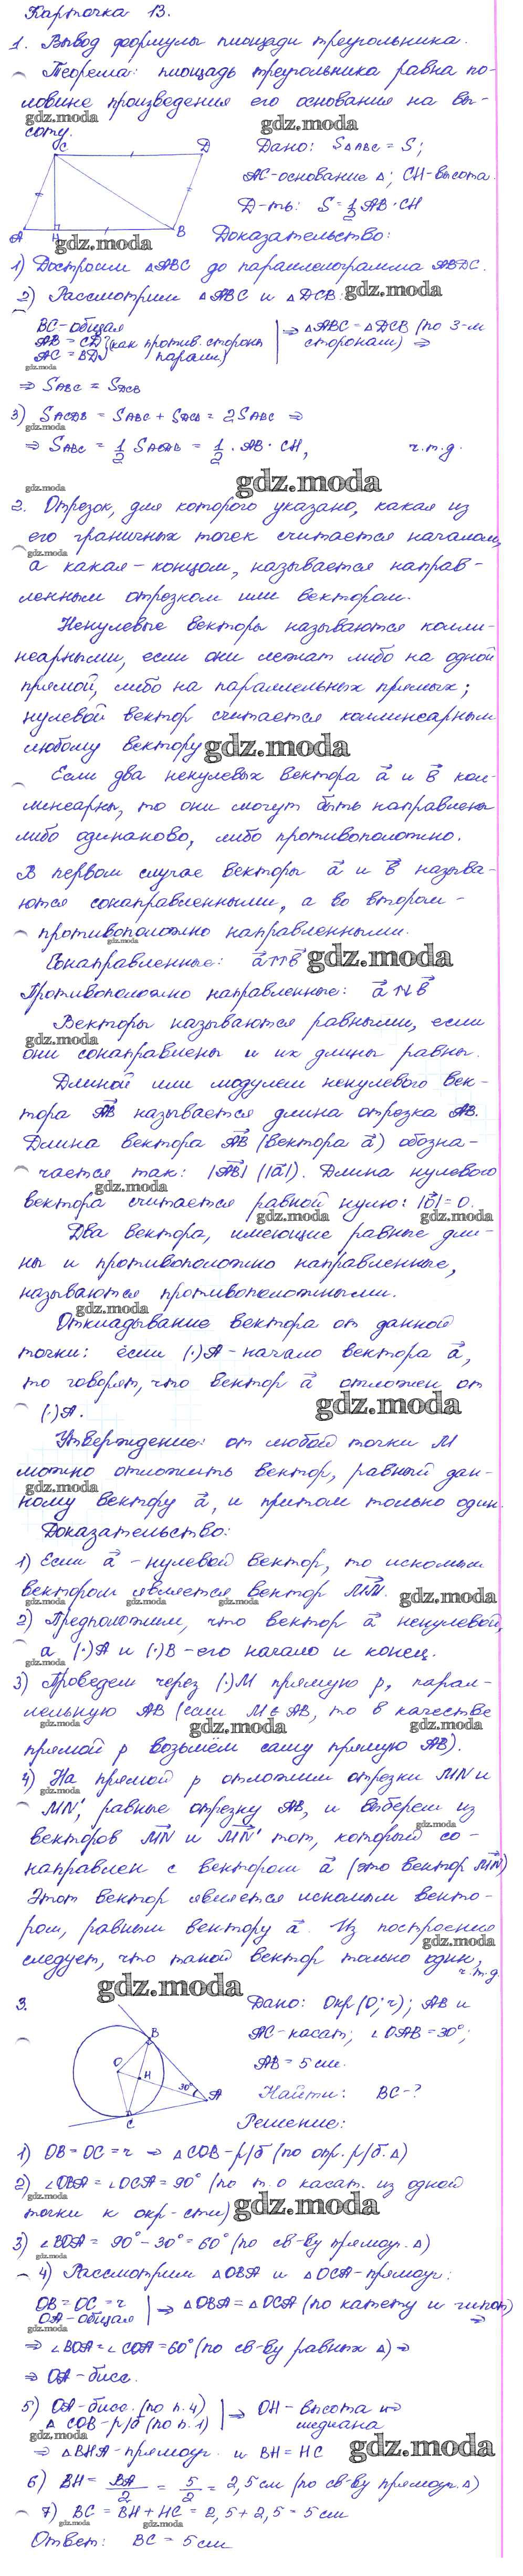 Карточка 13.
1. Вывод формулы площади треугольника.
Теорема: площадь треугольника равна по-
ловине произведения его основания на вы-
соту.
gdz.moda
gdz.moda
C D
A H B
Дано: S△ABC = S;
AC-основание △; CH-высота.
Д-ть: S = 1/2 AB · CH
gdz.moda
Доказательство:
1) Достроим △ABC до параллелограмма ABDC.
2) Рассмотрим △ABC и △DCB:
gdz.moda
BC-общая
AB = CD (как против. стороны
AC = BD парал.)
⇒ △ABC = △DCB (по 3-м
сторонам) ⇒
gdz.moda
⇒ SABC = SDCB
3) SACDB = SABC + SDCB = 2SABC ⇒
gdz.moda
⇒ SABC = 1/2 SACDB = 1/2 · AB · CH, ч.т.д.
gdz.moda
gdz.moda
2. Отрезок, для которого указано, какая из
его граничных точек считается началом,
gdz.moda
а какая-концом, называется направ-
ленным отрезком или вектором.
Ненулевые векторы называются колли-
неарными, если они лежат либо на одной
прямой, либо на параллельных прямых;
нулевой вектор считается коллинеарным
любому вектору
gdz.moda
Если два ненулевых вектора a⃗ и b⃗ кол-
линеарны, то они могут быть направлены
либо одинаково, либо противоположно.
В первом случае векторы a⃗ и b⃗ называ-
ются сонаправленными, а во втором -
- противоположно направленными.
gdz.moda
Сонаправленные: a⃗↑↑b⃗
gdz.moda
Противоположно направленные: a⃗↑↓b⃗
Векторы называются равными, если
gdz.moda
они сонаправлены и их длины равны.
Длиной или модулем ненулевого век-
тора AB⃗ называется длина отрезка AB.
Длина вектора AB⃗ (вектора a⃗) обозна-
чается так: |AB⃗| (|a⃗|). Длина нулевого
gdz.moda
вектора считается равной нулю: |0⃗| = 0.
gdz.moda
gdz.moda
Два вектора, имеющие равные дли-
ны и противоположно направленные,
называются противоположными.
gdz.moda
Откладывание вектора от данной
точки: если (·)A - начало вектора a⃗,
то говорят, что вектор a⃗ отложен от
(·)A.
gdz.moda
Утверждение: от любой точки M
можно отложить вектор, равный дан-
gdz.moda
ному вектору a⃗, и притом только один.
Доказательство:
1) Если a⃗ - нулевой вектор, то искомым
вектором является вектор MM⃗.
gdz.moda
gdz.moda
gdz.moda
gdz.moda
2) Предположим, что вектор a⃗ ненулевой,
а (·)A и (·)B - его начало и конец.
gdz.moda
3) Проведем через (·)M прямую p, парал-
лельную AB (если M∈AB, то в качестве
gdz.moda
gdz.moda
gdz.moda
прямой p возьмём саму прямую AB).
4) На прямой p отложим отрезки MN и
gdz.moda
MN', равные отрезку AB, и выберем из
gdz.moda
векторов MN⃗ и MN'⃗ тот, который со-
направлен с вектором a⃗ (это вектор MN⃗)
Этот вектор является искомым векто-
ром, равным вектору a⃗. Из построения
gdz.moda
следует, что такой вектор только один,
ч.т.д.
gdz.moda
3.
B
O H 30° A
C
Дано: Окр(O; r); AB и
AC-касат; ∠OAB = 30°;
AB = 5 см.
Найти: BC-?
Решение:
1) OB = OC = r ⇒ △COB - р/б (по опр. р/б. △)
2) ∠OBA = ∠OCA = 90° (по т. о касат. из одной
gdz.moda
точки к окр-сти)
gdz.moda
3) ∠BOA = 90° - 30° = 60° (по св-ву прямоуг. △)
gdz.moda
4) Рассмотрим △OBA и △OCA-прямоуг:
OB = OC = r
OA - общая
⇒ △OBA = △OCA (по катету и гипот)
⇒
gdz.moda
⇒ ∠BOA = ∠COA = 60° (по св-ву равных △) ⇒
⇒ OA - бисс.
5) OA - бисс. (по п.4)
△ COB - р/б (по п.1)
⇒ OH - высота и
медиана
gdz.moda
⇒ △BHA - прямоуг. и BH = HC
gdz.moda
6) BH = BA/2 = 5/2 = 2,5 см (по св-ву прямоуг. △)
7) BC = BH + HC = 2,5 + 2,5 = 5 см
gdz.moda
gdz.moda
Ответ: BC = 5 см